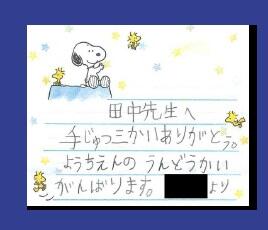 田中先生へ
手じゅつ三かいありがとう。
ようちえんの うんどうかい
がんばります。
より